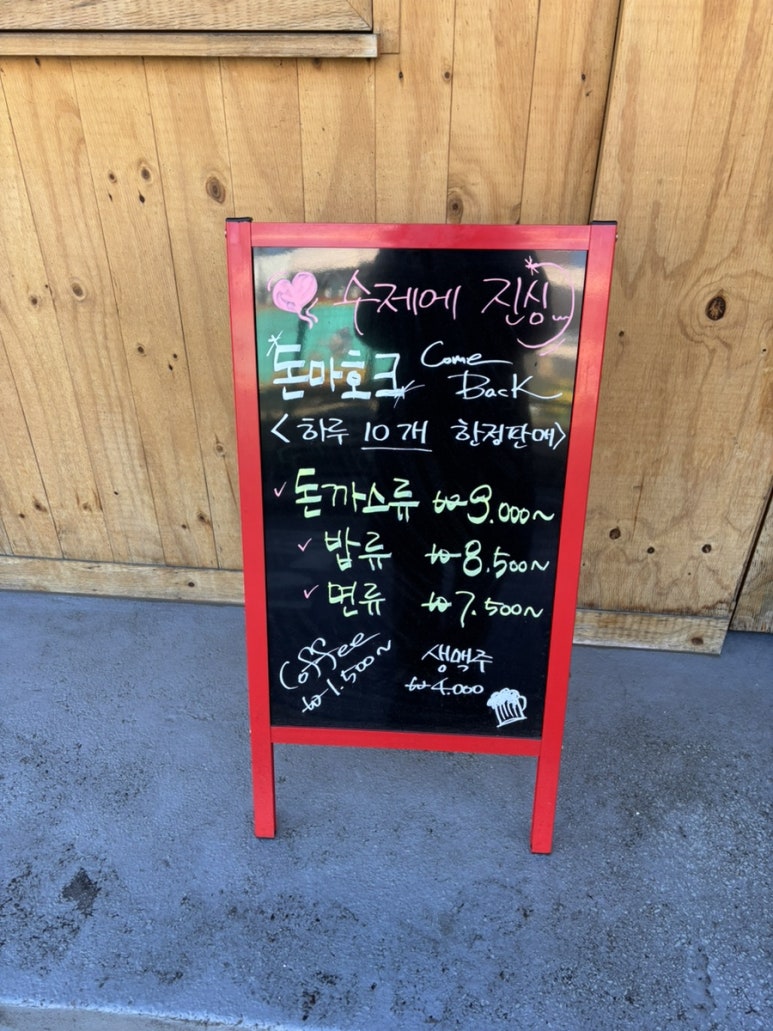 수제에 진심
돈마호크 Come Back
<하루 10개 한정판매>
✓ 돈까스류 ₩9.000~
✓ 밥류 ₩8.500~
✓ 면류 ₩7.500~
Coffee ₩1.500~
생맥주 ₩4.000